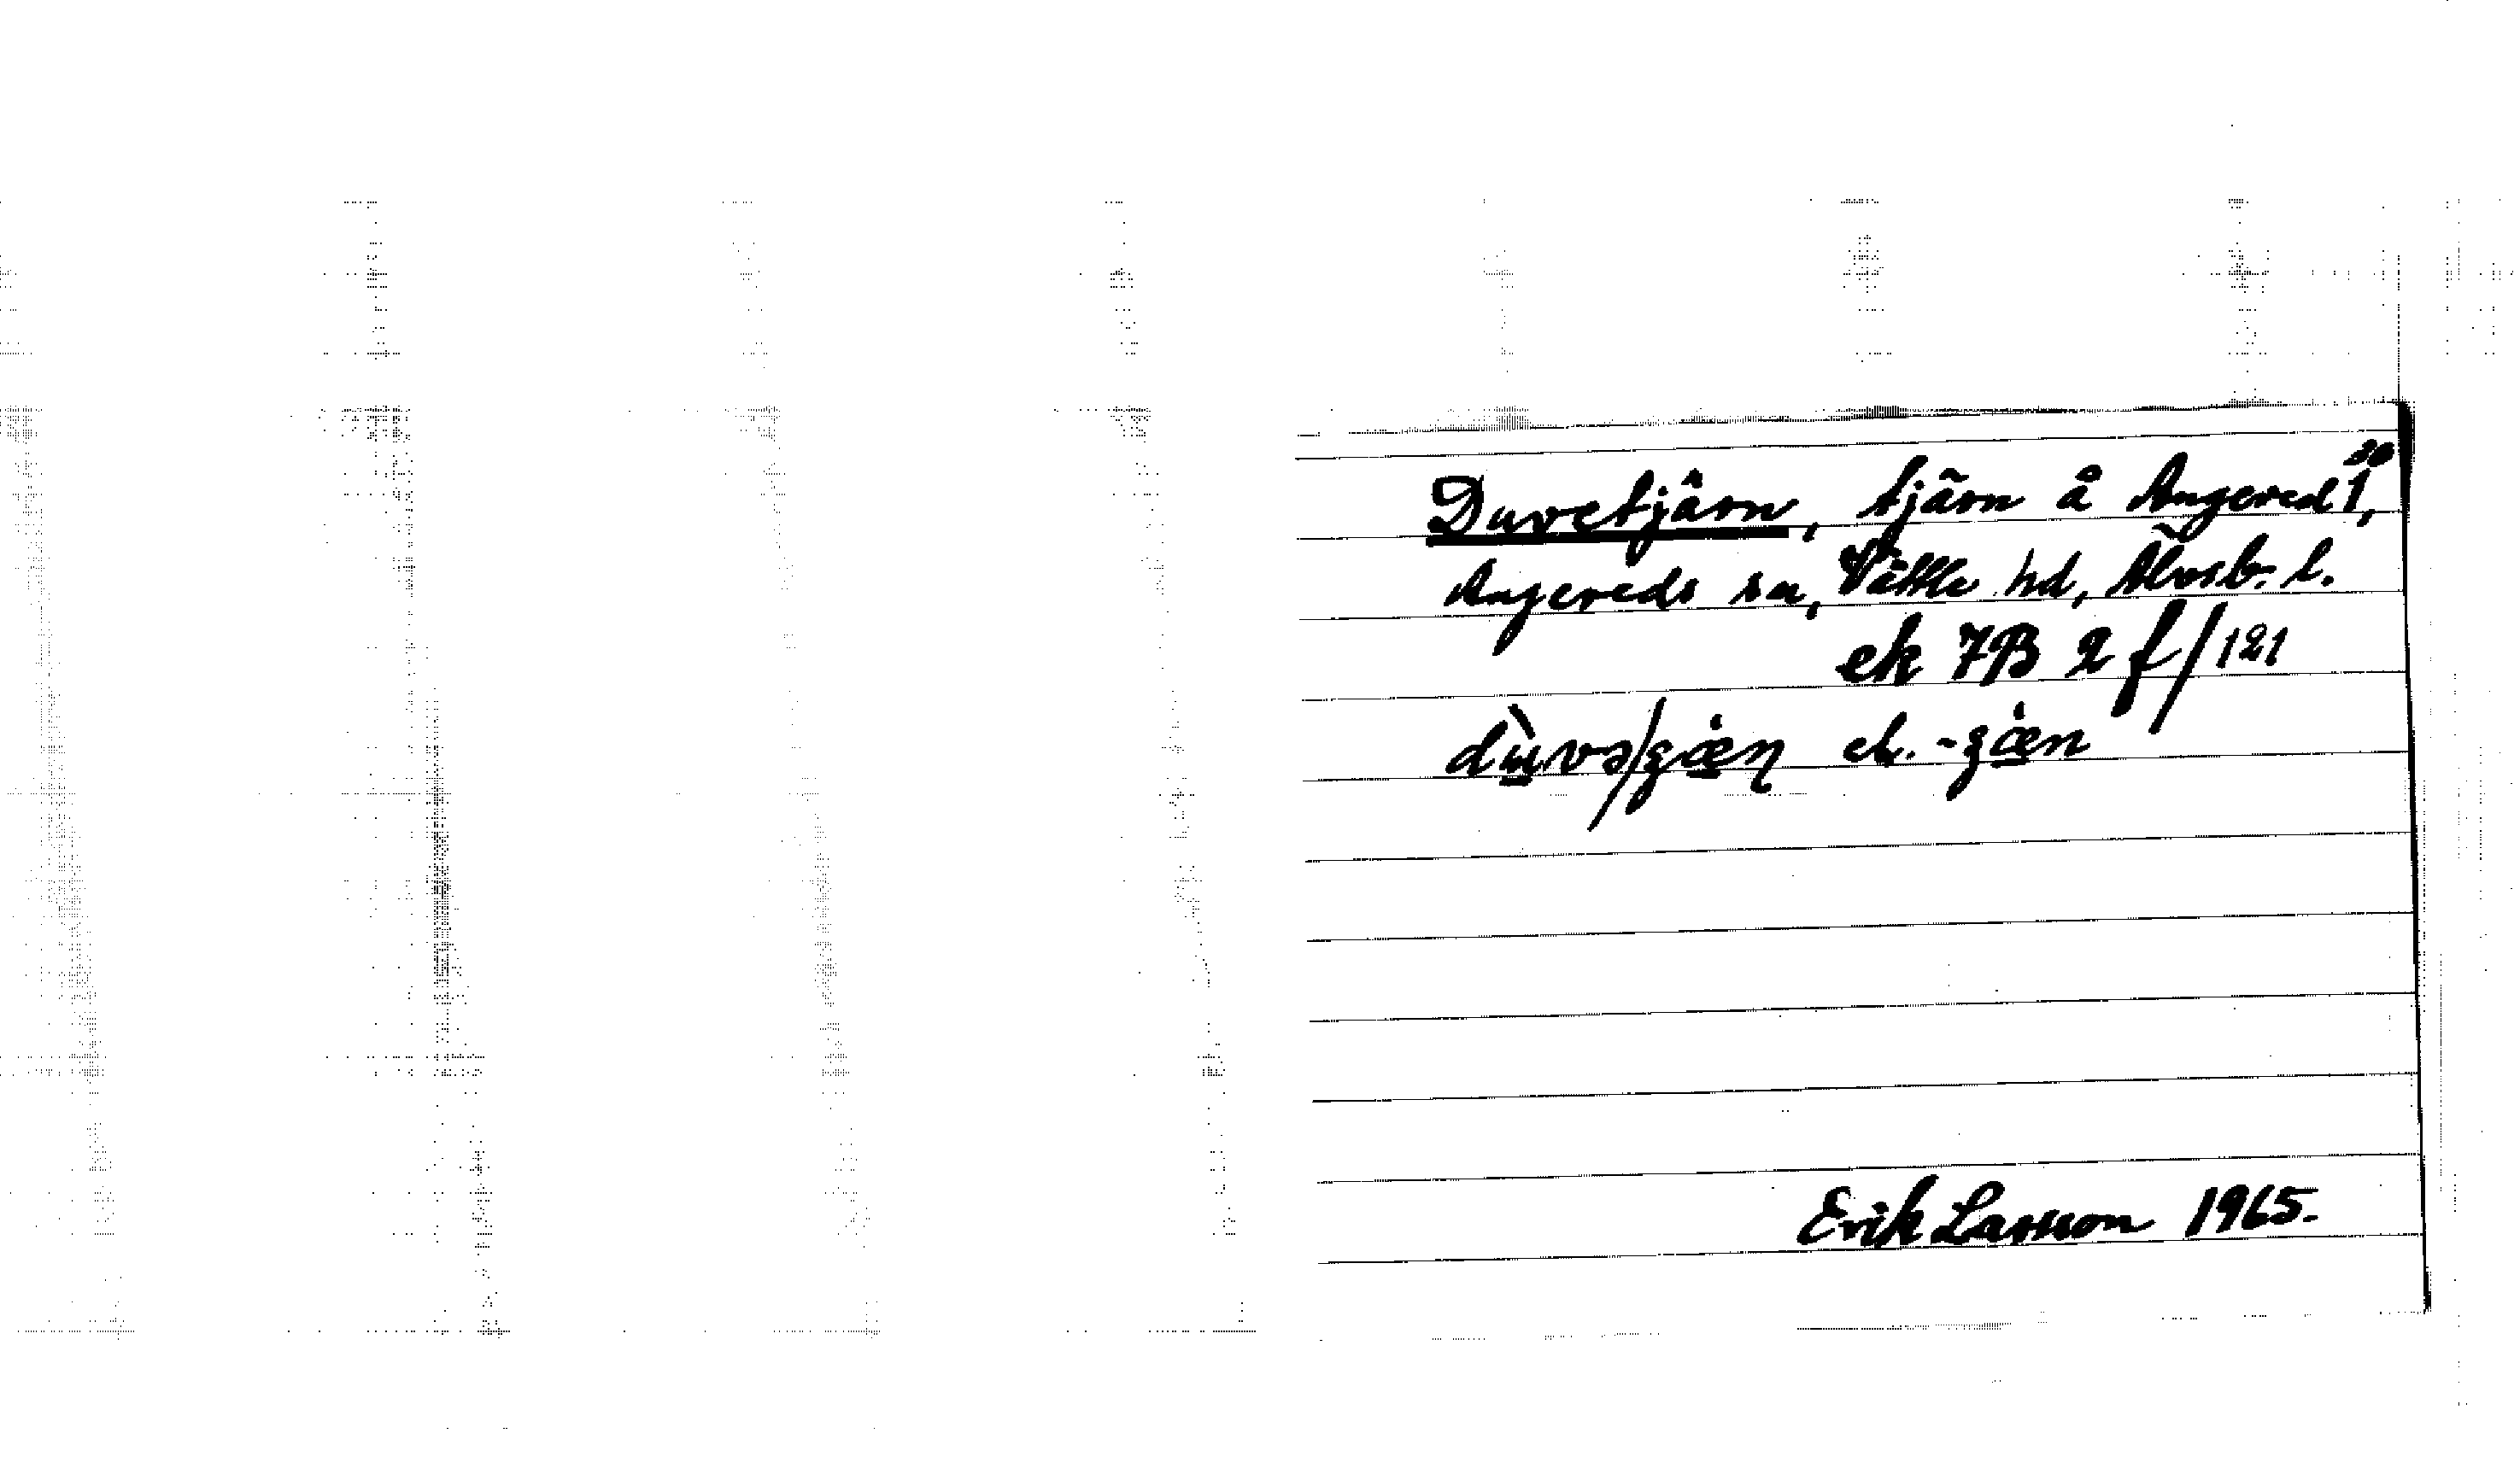 Duvetjärn, tjärn å Angered 1³⁰,
Angereds sn, Vättle hd, Älvsb. l.
ek 7B 2 f/121
el.
Erik Larsson 1965.